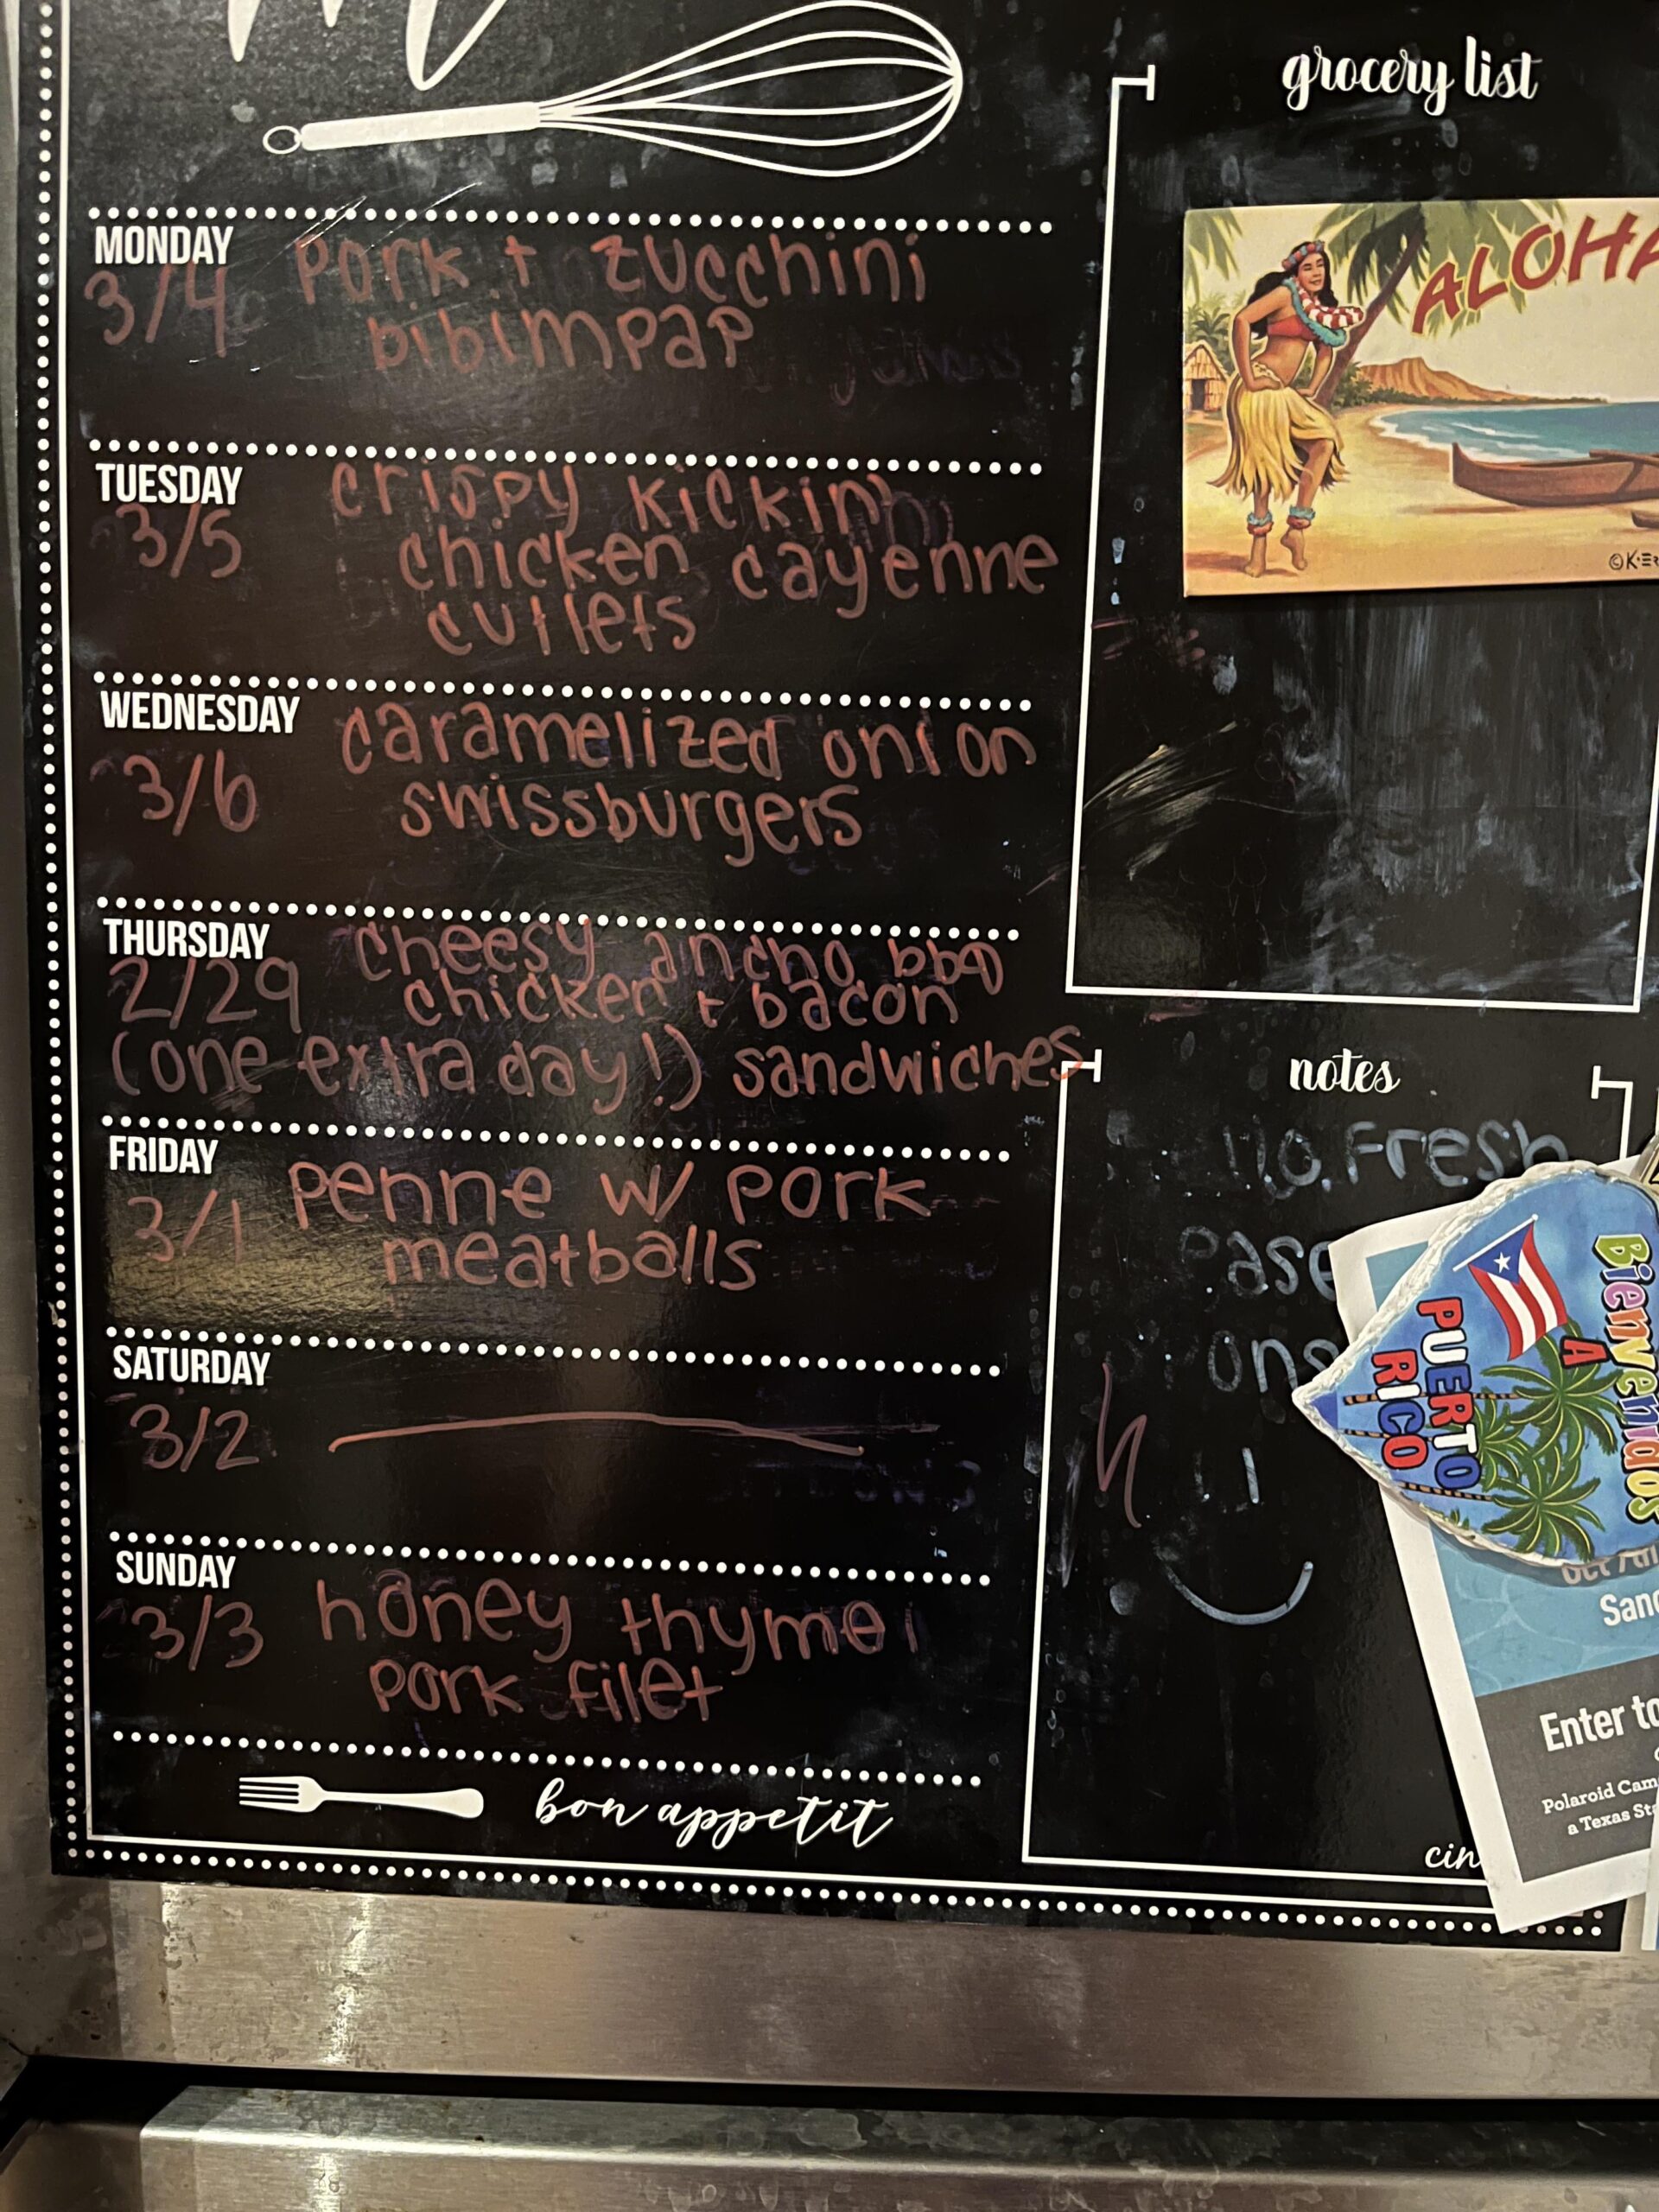 MONDAY
3/4 pork + zucchini
bibimpap
TUESDAY
3/5 crispy kickin
chicken cayenne
cutlets
WEDNESDAY
3/6 caramelized onion
swissburgers
THURSDAY
2/29 cheesy ancho bbq
chicken + bacon
(one extra day!) sandwiches
FRIDAY
3/1 penne w/ pork
meatballs
SATURDAY
3/2
SUNDAY
3/3 honey thyme
pork filet
bon appetit
grocery list
ALOHA
notes
Fresh
Bienvenidos
A
PUERTO
RICO
Enter to
Polaroid Cam
a Texas St